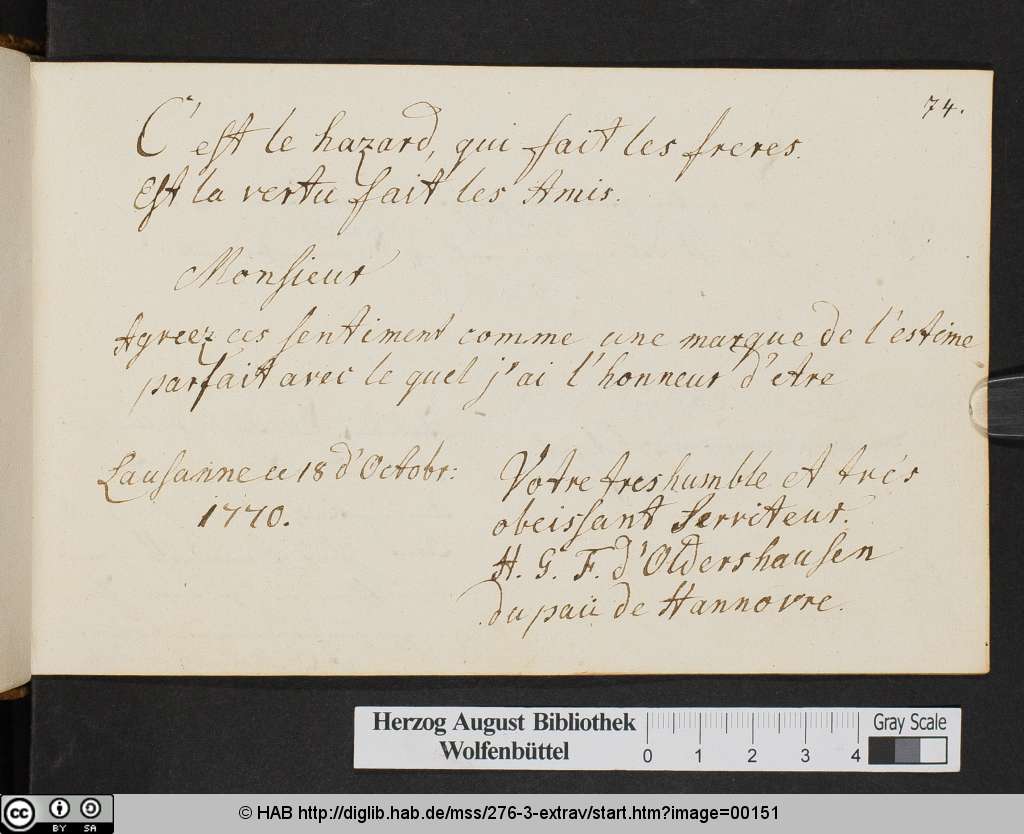 74.
C'est le hazard, qui fait les freres.
Est la vertu fait les Amis.
Monsieur
Agreez ces sentiment comme une marque de l'estime
parfait avec le quel j'ai l'honneur d'etre
Lausanne ce 18 d'Octobr:
1770.
Votre tres humble et trés
obeissant Serviteur.
H. G. F. d'Oldershausen
du païi de Hannovre.
Herzog August Bibliothek
Wolfenbüttel
0 1 2 3 4
Gray Scale
cc BY SA
© HAB http://diglib.hab.de/mss/276-3-extrav/start.htm?image=00151